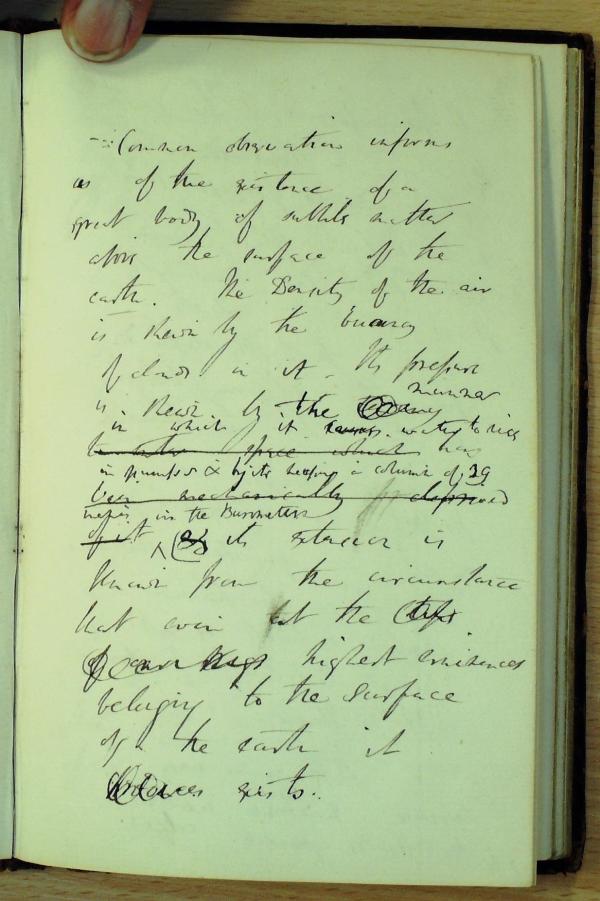 Common observation informs
us of the existence of a
great body of subtile matter
above the surface of the
earth. The Density of the air
is shewn by the buoyancy
of clouds in it - Its pressure
is shewn by the manner
in which it causes water to rise
to enter space which has
in pumps & by its keeping a column of 29
been mechanically deprived
inches in the Barometer
of it & its extension is
known from the circumstance
that even at the tops
of our highest eminences
belonging to the surface
of the earth it
exists.